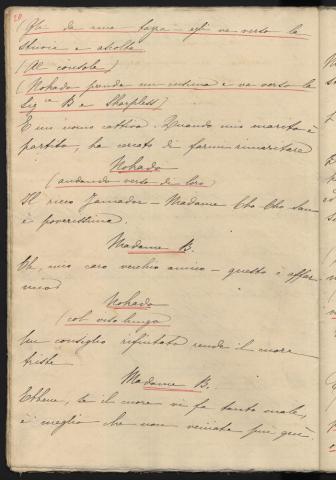 20
(Gli da una tazza - egli va verso la
stuoia e ascolta
(Al console)
(Nohado prende un cuscino e va verso la
Sig.ra B e Sharpless)
È un uomo cattivo. Quando mio marito è
partito, ha cercato di farmi rimaritare
Nohado
(andando verso di loro
Il ricco Jamador - Madame Cho Cho San
è poverissima.
Madame B.
Oh, mio caro vecchio amico - questo è affar
mio
Nohado
(col viso lungo
Un consiglio rifiutato rende il cuore
triste
Madame B.
Ebbene, se il cuore vi fa tanto male,
è meglio che non veniate più quì.